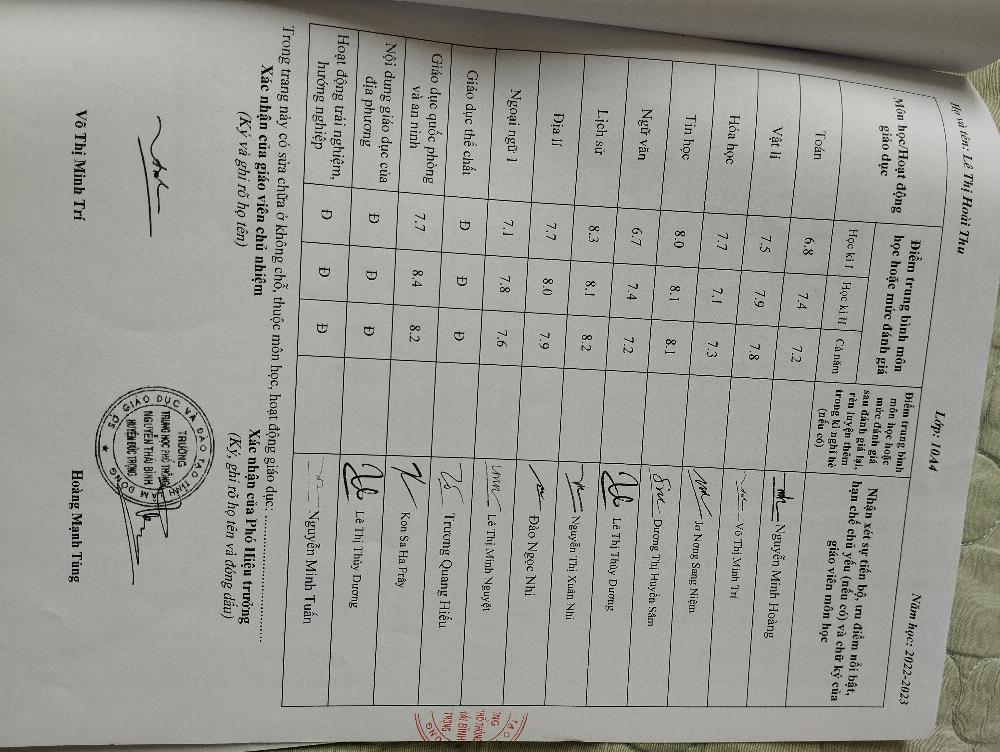 Họ và tên: Lê Thị Hoài Thu Lớp: 10A4 Năm học: 2022-2023
Môn học/Hoạt động giáo dục
Điểm trung bình môn học hoặc mức đánh giá
Học kì I Học kì II Cả năm
Điểm trung bình môn học hoặc mức đánh giá sau đánh giá lại, rèn luyện thêm trong kì nghỉ hè (nếu có)
Nhận xét sự tiến bộ, ưu điểm nổi bật, hạn chế chủ yếu (nếu có) và chữ ký của giáo viên môn học
Toán 6.8 7.4 7.2 Nguyễn Minh Hoàng
Vật lí 7.5 7.9 7.8 Võ Thị Minh Trí
Hóa học 7.7 7.1 7.3 Jơ Nơng Sang Niệm
Tin học 8.0 8.1 8.1 Dương Thị Huyền Sâm
Ngữ văn 6.7 7.4 7.2 Lê Thị Thùy Dương
Lịch sử 8.3 8.1 8.2 Nguyễn Thị Xuân Nhi
Địa lí 7.7 8.0 7.9 Đào Ngọc Nhi
Ngoại ngữ 1 7.1 7.8 7.6 Lê Thị Minh Nguyệt
Giáo dục thể chất Đ Đ Đ Trương Quang Hiếu
Giáo dục quốc phòng và an ninh 7.7 8.4 8.2 Kon Sa Ha Frây
Nội dung giáo dục của địa phương Đ Đ Đ Lê Thị Thùy Dương
Hoạt động trải nghiệm, hướng nghiệp Đ Đ Đ Nguyễn Minh Tuấn
Trong trang này có sửa chữa ở không chỗ, thuộc môn học, hoạt động giáo dục: ..............................
Xác nhận của giáo viên chủ nhiệm
(Ký và ghi rõ họ tên)
Võ Thị Minh Trí
Xác nhận của Phó Hiệu trưởng
(Ký, ghi rõ họ tên và đóng dấu)
SỞ GIÁO DỤC VÀ ĐÀO TẠO TỈNH LÂM ĐỒNG
TRƯỜNG
TRUNG HỌC PHỔ THÔNG
NGUYỄN THÁI BÌNH
HUYỆN ĐỨC TRỌNG
Hoàng Mạnh Tùng